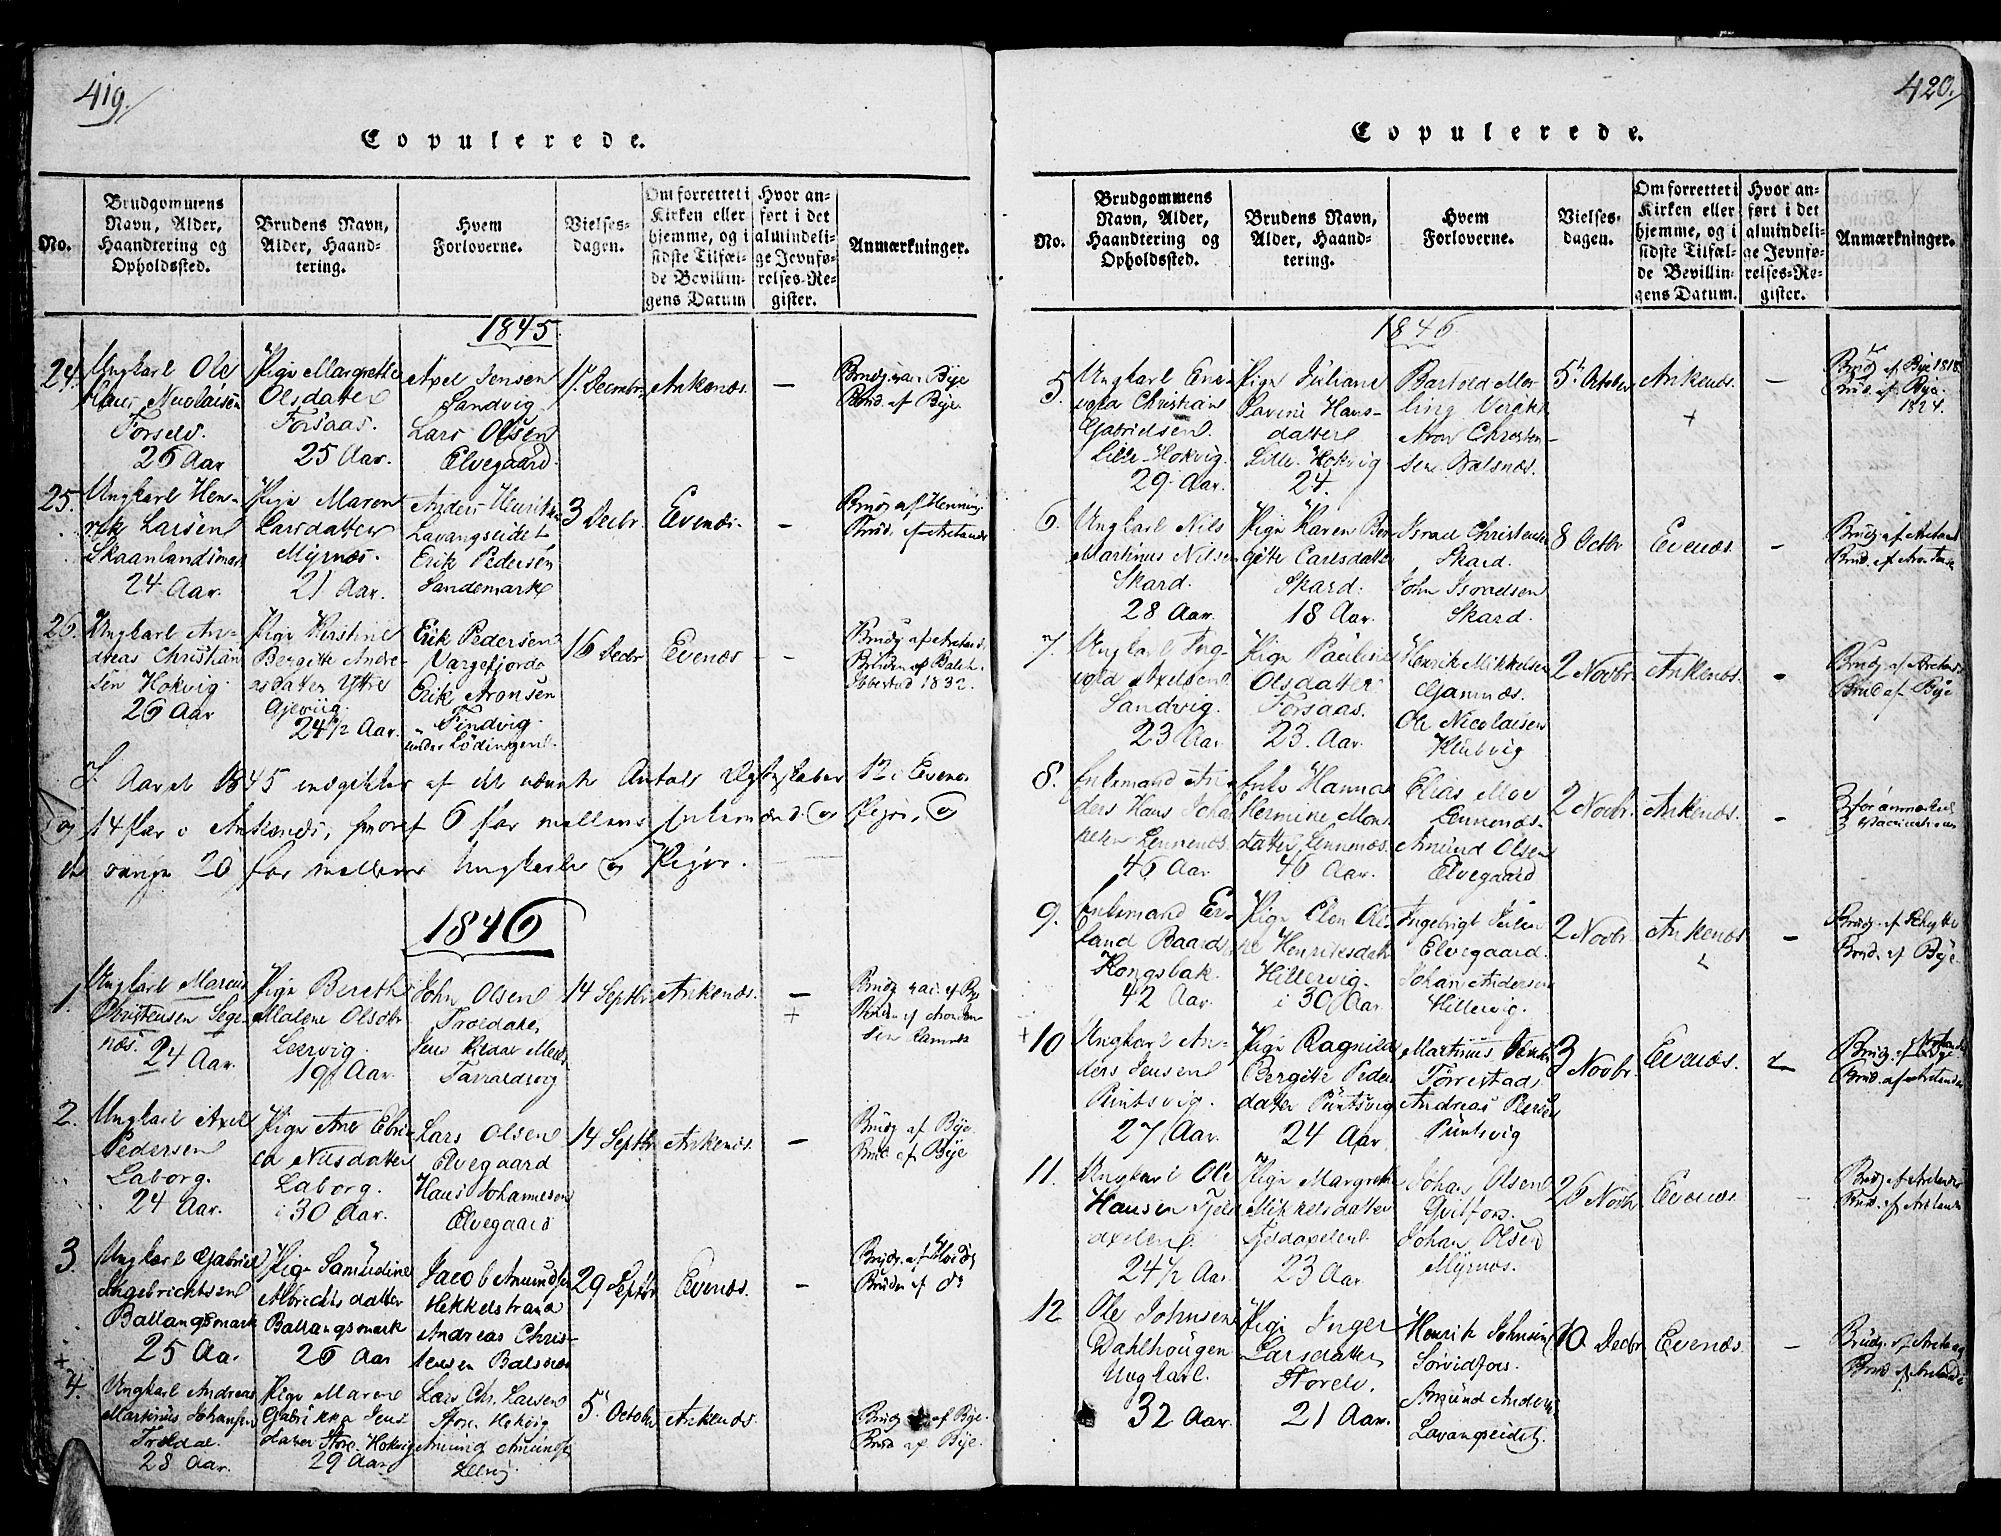 419.
Copulerede.
No.
Brudgommens
Navn, Alder,
Haandtering og
Opholdssted.
Brudens Navn,
Alder, Haand-
tering.
Hvem
Forloverne.
Vielses-
dagen.
Om forrettet i
Kirken eller
hjemme, og i
sidste Tilfæl-
de Bevillin-
gens Datum
Hvor an-
ført i det
almindeli-
ge Jevnfø-
relses-Re-
gister.
Anmærkninger.
1845
24.
Ungkarl Ole
Nicolaisen
Forselv.
26 Aar
Pige Margrethe
Olsdatter
Forsaas.
25 Aar.
Axel Jensen
Sandvig
Lars Olsen
Elvegaard.
1 Decembr.
Ankenæs.
—
Brudg. vac. Bye
Brud. af Bye.
25.
Ungkarl Hen-
rik Larsen
Skaanlandsmark
24 Aar.
Pige Maren
Larsdatter
Myrnæs.
21 Aar.
Anders Henriksen
Lavangseidet
Erik Pedersen
Sandemark
3 Decbr.
Evenæs.
—
Brudg. af Henning
Brud. af Arctander
26.
Ungkarl An-
dreas Christian
sen Hokvig
26 Aar
Pige Kirstine
Bergitte Andre-
asdatter Yttre
24½ Aar.
Erik Pedersen
Vargefjord
Erik Aronsen
Findvig
under Lødingen.
16 Decbr
Evenæs
—
Brudg. af Arctand.
Bruden af
Ibbestad 1832.
I Aaret 1845 indgikkes af det nævnte Antal Egteskaber 12 i Evenæs
og 14 Par i Ankenæs, hvoraf 6 Par mellem Enkemænd og Piger, og
de øvrige 20 Par mellem Ungkarle og Piger.
1846
1.
Ungkarl Marcus
Christensen Sege-
næs.
24 Aar.
Pige Bereth
Malene Olsdtr
Leervig.
19 Aar.
John Olsen
Troldalen
Taraldsvig
14 Septbr
Ankenæs.
—
Brudg. vac. af Bye
2.
Ungkarl Axel
Pedersen
Laborg.
24 Aar.
Pige Ane
Nilsdatter
Laborg.
i 30 Aar.
Lars Olsen
Elvegaard
Hans Johannesen
Elvegaard
14 Septbr
Ankenæs.
—
Brudg af Bye
Brud af Bye
3
Ungkarl Gabriel
Ingebrichtsen
Ballangsmark
25 Aa.
Pige Samudine
Albrichtsdatter
Ballangsmark
26 Aar
Jacob Amundsen
Hekkelstrand
Andreas Chris-
tensen Balsnæs
29 Septbr
Evenæs.
—
Bruden af do
4.
Ungkarl Andreas
Martinus Johansen
Troldal
28 Aar.
Pige Maren
Jens
datter Store Hokvig
29 Aar
Lars Chr. Larsen
Store Hokvig
Amund Amundsen
5 Octobr
Ankenæs.
Brudg af Bye.
Brud af Bye.
420.
Copulerede.
No.
Brudgommens
Navn, Alder,
Haandtering og
Opholdssted.
Brudens Navn,
Alder, Haand-
tering.
Hvem
Forloverne.
Vielses-
dagen.
Om forrettet i
Kirken eller
hjemme, og i
sidste Tilfæl-
de Bevillin-
gens Datum.
Hvor an-
ført i det
almindeli-
ge Jevnfø-
relses-Re-
gister.
Anmærkninger.
1846
5.
Ungkarl Ene-
vold Christian
Gabrielsen.
Lille-Hokvig.
29 Aar.
Pige Juliane
Lavine Hans-
datter
Lille-Hokvig
24.
Bartold Mor-
ling
Aron Christen-
sen Balsnæs.
5 October
Ankenæs.
—
Brudg af Bye 1818
Brud. af Bye.
1824.
6.
Ungkarl Nils
Martinus Nilsen
Skard.
28 Aar.
Pige Karen Ber
gite Carlsdatter
Skard.
18 Aar.
Israel Christensen
Skard.
John Israelsen
Skard.
8 Octbr
Evenæs.
—
Brudg af Arctand
7.
Ungkarl
Axelsen
Sandvig.
23 Aar.
Pige Pauline
Olsdatter
Forsaas.
23. Aar.
Henrik Mikkelsen
Gamnæs.
Ole Nicolaisen
Klubvig
2 Novbr
Ankenæs.
Brudg. af Arctand
Brud af Bye
8.
Enkemand An-
ders Hans Johan
Lennenæs.
46 Aar
Enke Hanna
Hermine Mons
datter Lennenæs.
46 Aar.
Elias Moe
Lennenæs.
Amund Olsen
Elvegaard
2 Novbr.
Ankenæs.
9.
Enkemand Er-
land Baards
Kongsbak.
42 Aar.
Pige Elen Oli-
ne Henriksdatt
Hillervig.
i 30 Aar.
Ingebrigt
Elvegaard.
Johan Andersen
Hillervig.
2 Novbr
Ankenæs
—
Brud. af Bye.
10
Ungkarl An-
ders Jensen
Puntsvig.
27 Aar.
Pige Ragnild
Bergitte Peder
datter Puntsvig
24 Aar
Martinus
Forrestad
Andreas
Puntsvig
3 Novbr.
Evenæs.
Brud. af Arctander
11.
Ungkarl Ole
Hansen Fjeld
axelen.
24½ Aar.
Pige Margreth
Mikkelsdatter
Fjeldaxelen
23 Aar
Johan Olsen
Johan Olsen
Myrnæs.
26 Novbr
Evenæs
—
Brudg. af Arctander
Brud. af Arctander
12.
Ole Johnsen
Dahlhougen
Ungkarl.
32 Aar.
Pige Inger
Larsdatter
Storelv.
21 Aar.
Henrik Johnsen
Sørvidfors.
Amund Anders
Lavangseidet.
10 Decbr
Evenæs.
—
Brudg. af Arctand
Brud af Arctander